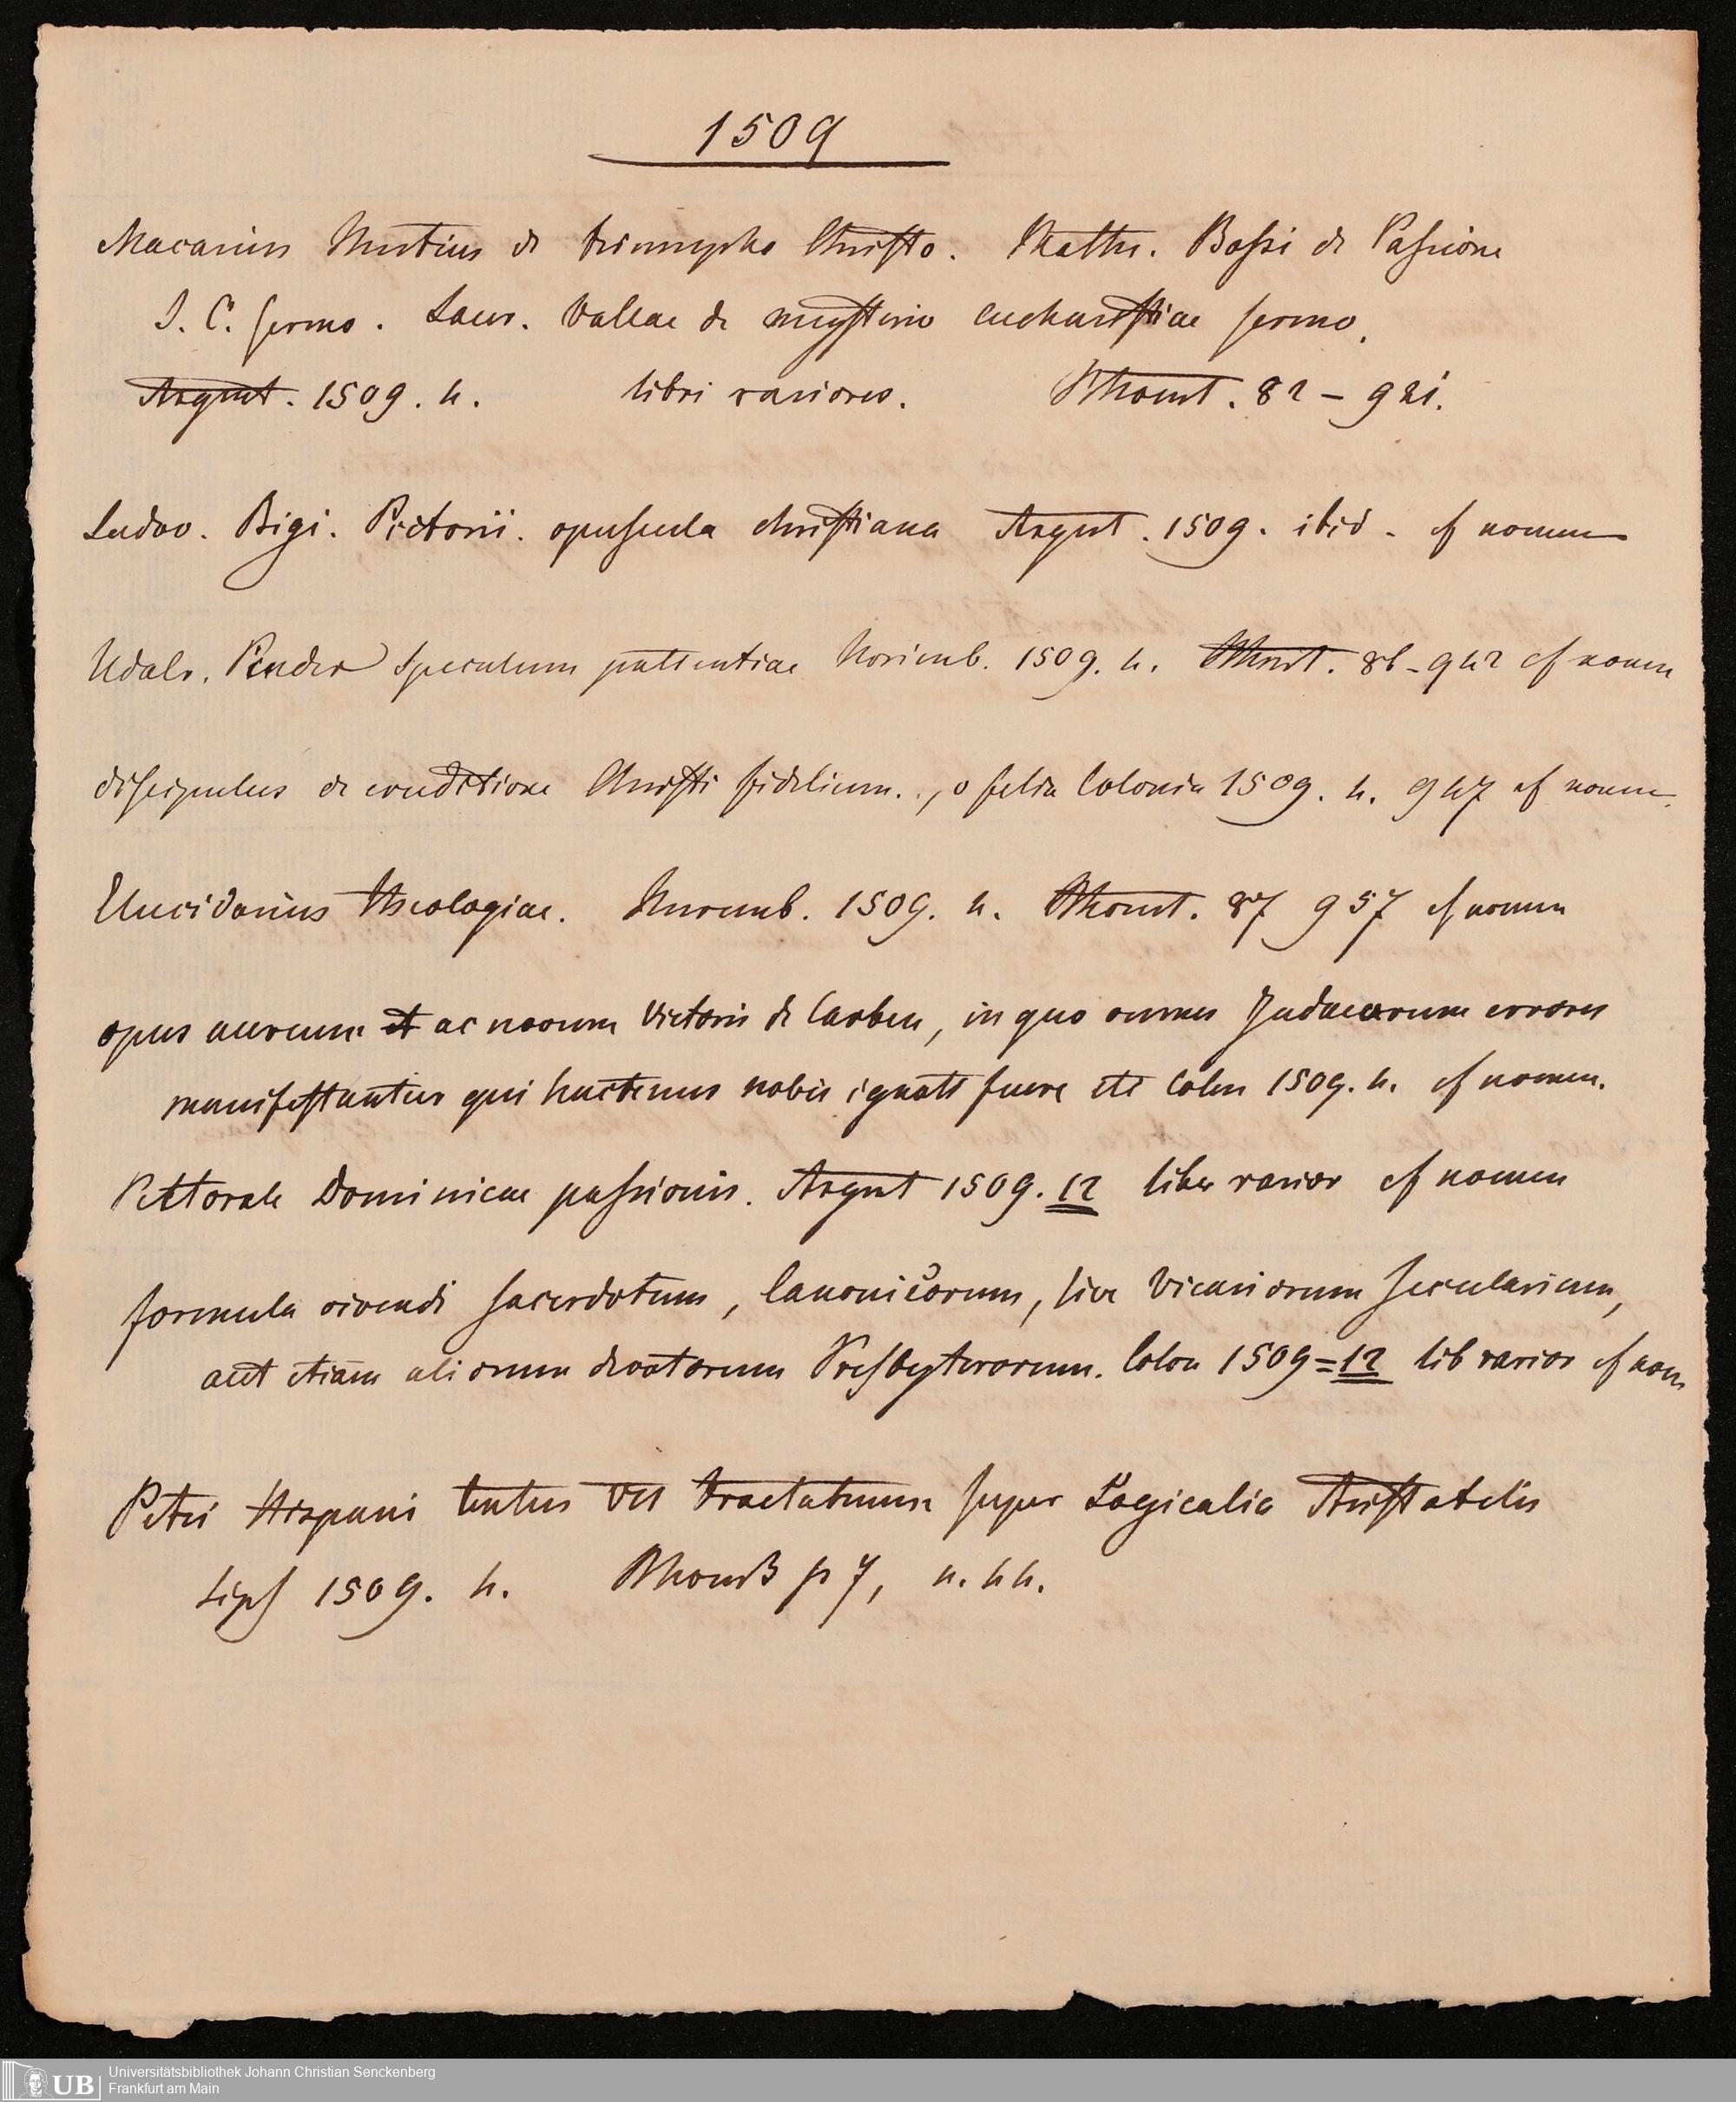 1509
Macarius Mutius de triumpho Christo. Matth. Bossi de Passione
J. C. sermo. Laur. Vallae de mysterio eucharistiae sermo.
Argent. 1509. 4. libri rariores. 82 – 921.
Ludov. Bigi. Pictorii. opuscula christiana Argent. 1509. ibid. cf nomen
Udalr. Pinder speculum patientiae Norimb. 1509. 4. 86 – 942 cf nomen
discipulus de eruditione Christi fidelium., o felix Colonia 1509. 4. 947 cf nomen.
Elucidarius theologiae. Nuremb. 1509. 4. 87 957 cf nomen
opus aureum et ac novum Victoris de Carben, in quo omnes Judaeorum errores
manifestantur qui hactenus nobis ignoti fuere etc Colon 1509. 4. cf nomen.
Pectorale Dominicae passionis. Argent 1509. 12 liber rarior cf nomen
formula vivendi sacerdotum, Canonicorum, sive Vicariorum secularium,
aut etiam aliorum devotorum Presbyterorum. Colon 1509=12 lib rarior cf nom
Petri Hispani textus VII tractatuum super Logicalia Aristotelis
Lips 1509. 4. p 7, n. 44.
Universitätsbibliothek Johann Christian Senckenberg
Frankfurt am Main
UB